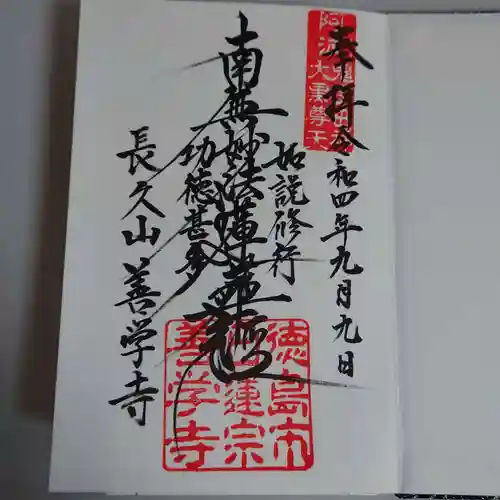 奉拝
令和四年九月九日
如説修行
南無妙法蓮華経
功徳甚多
長久山 善学寺
徳島市
日蓮宗
善学寺